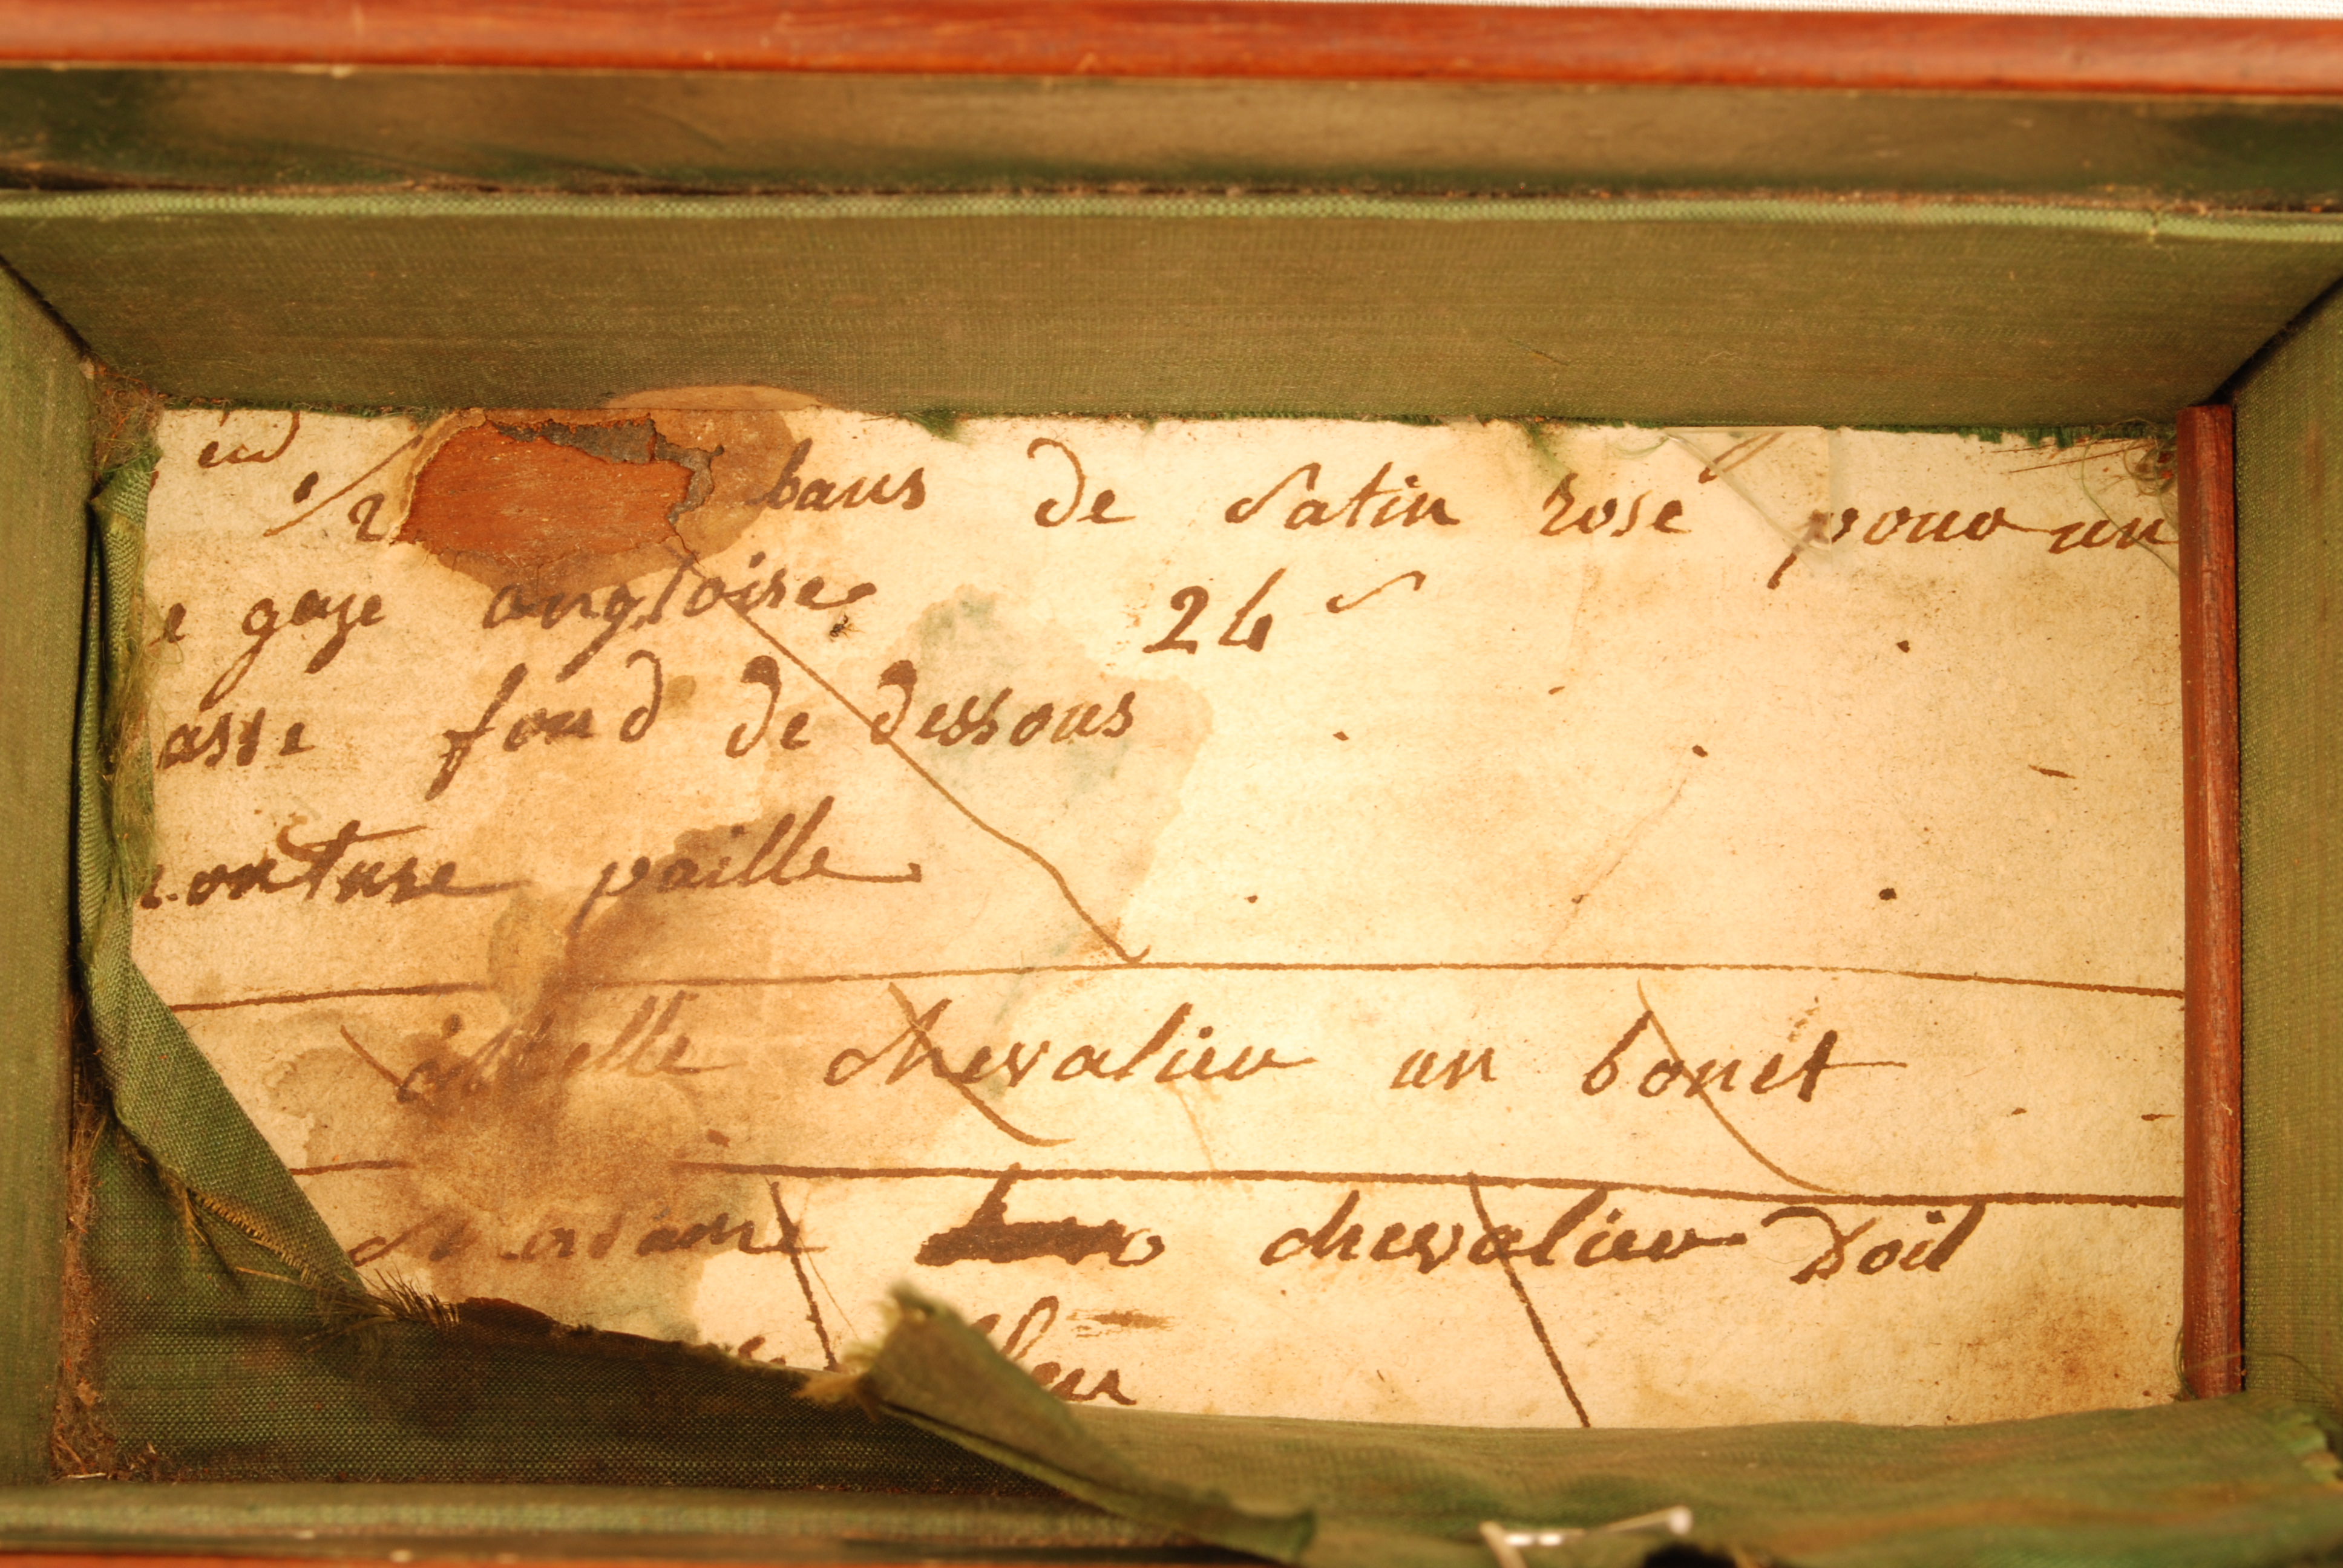 1/2 bans de Satin rose pour un
e gaze angloise 24 s
asse fond de dessous
onture paille
elle chevalier un bonet
Madame chevalier Doit